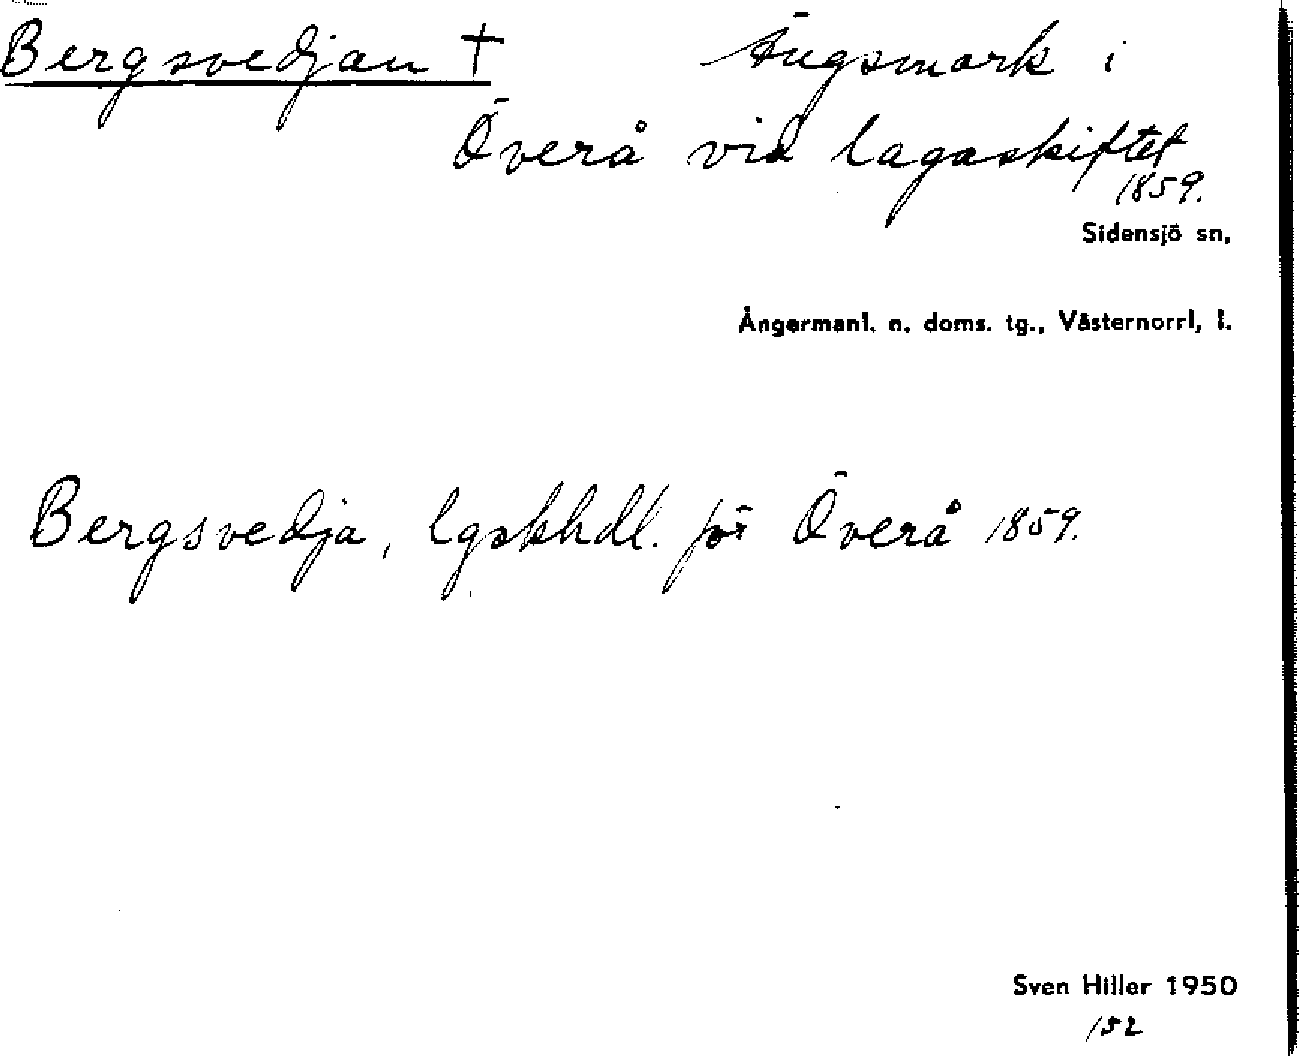 Bergsvedjan † Ängsmark i
Överå vid lagaskiftet
1859.
Sidensjö sn,
Ångermanl. n. doms. tg., Västernorrl, l.
Bergsvedja, lgskhdl. för Överå 1859.
Sven Hiller 1950
152